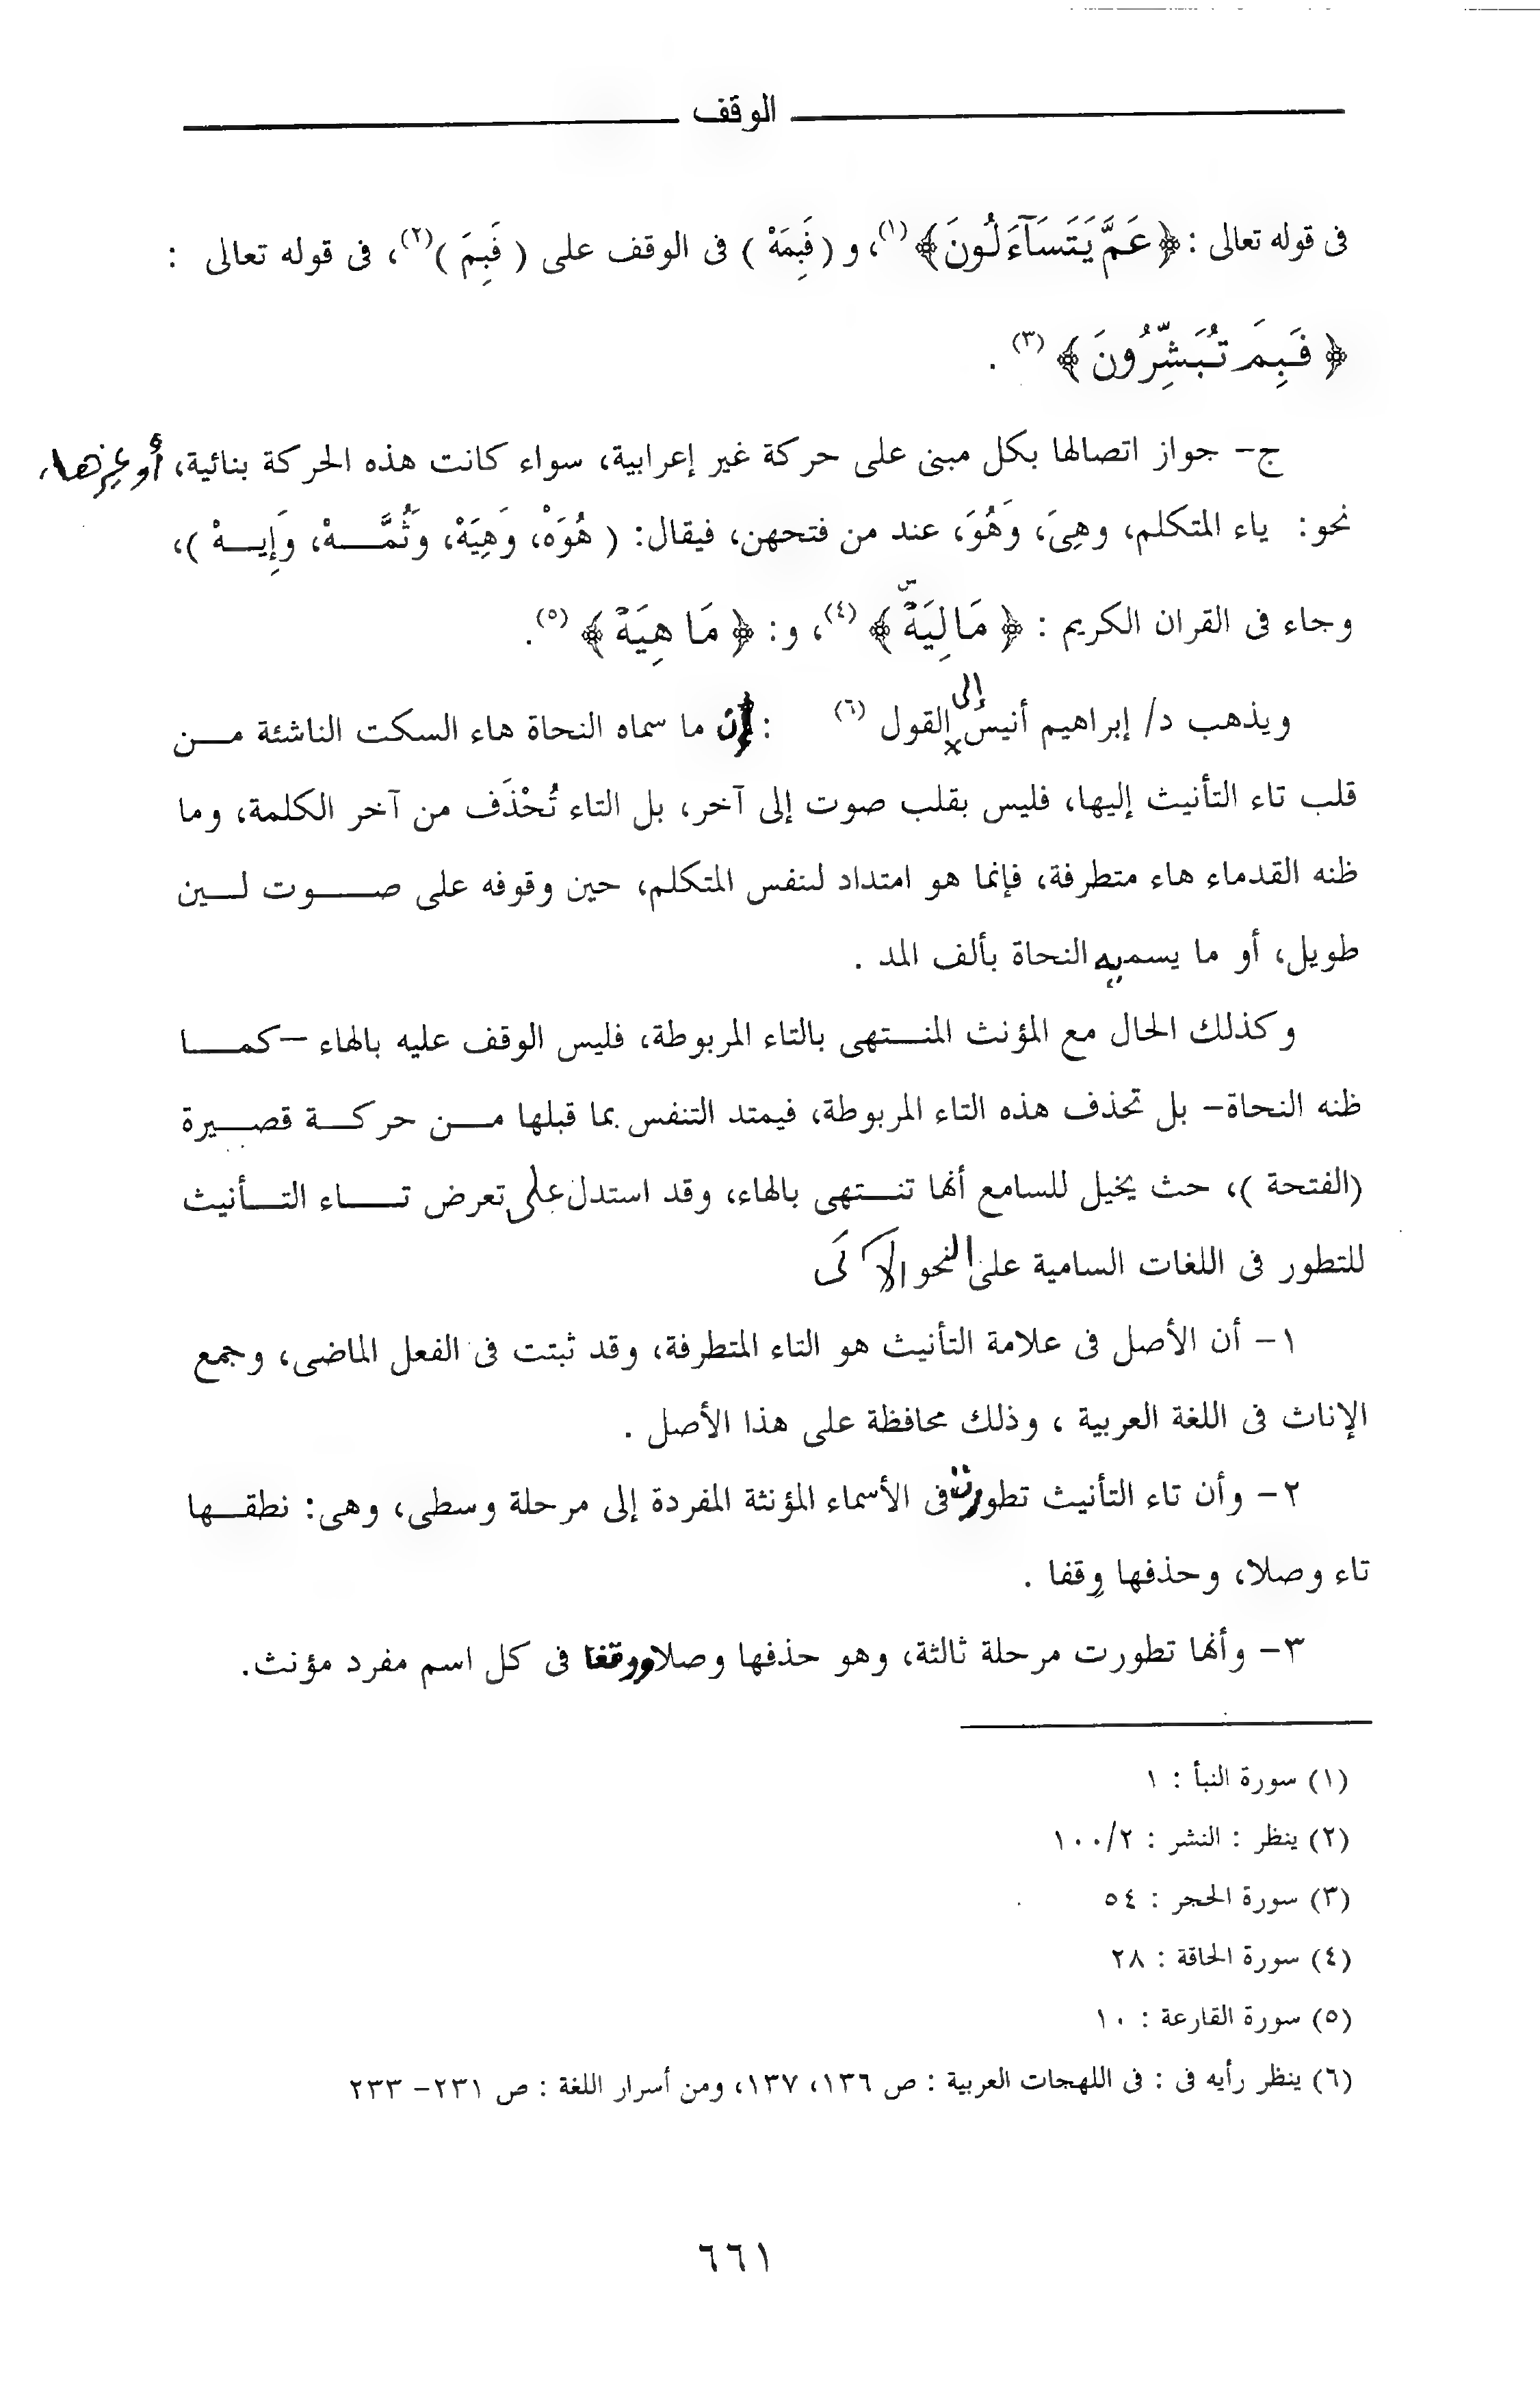 الوقف
فى قوله تعالى : ﴿ عَمَّ يَتَسَآءَلُونَ ﴾(١)، و ( فَبِمَهْ ) فى الوقف على ( فَبِمَ )(٢)، فى قوله تعالى :
﴿ فَبِمَ تُبَشِّرُونَ ﴾ (٣) .
ج- جواز اتصالها بكل مبنى على حركة غير إعرابية، سواء كانت هذه الحركة بنائية، أو غيرها،
نحو: ياء المتكلم، وهِىَ، وَهُوَ، عند من فتحهن، فيقال: ( هُوَهْ، وَهِيَهْ، وَثُمَّـــهْ، وَإِيـــهْ )،
وجاء فى القران الكريم : ﴿ مَالِيَهْۜ ﴾ (٤)، و: ﴿ مَا هِيَهْ ﴾ (٥).
ويذهب د/ إبراهيم أنيس إلى القول (٦) : إن ما سماه النحاة هاء السكت الناشئة مـــن
قلب تاء التأنيث إليها، فليس بقلب صوت إلى آخر، بل التاء تُحْذَف من آخر الكلمة، وما
ظنه القدماء هاء متطرفة، فإنما هو امتداد لنفس المتكلم، حين وقوفه على صـــوت لـــين
طويل، أو ما يسميه النحاة بألف المد .
وكذلك الحال مع المؤنث المنـــتهى بالتاء المربوطة، فليس الوقف عليه بالهاء –كمـــا
ظنه النحاة- بل تحذف هذه التاء المربوطة، فيمتد التنفس بما قبلها مـــن حركـــة قصـــيرة
(الفتحة )، حث يخيل للسامع أنها تنـــتهى بالهاء، وقد استدل على تعرض تـــاء التـــأنيث
للتطور فى اللغات السامية على النحو الآتى
١- أن الأصل فى علامة التأنيث هو التاء المتطرفة، وقد ثبتت فى الفعل الماضى، وجمع
الإناث فى اللغة العربية ، وذلك محافظة على هذا الأصل .
٢- وأن تاء التأنيث تطورت فى الأسماء المؤنثة المفردة إلى مرحلة وسطى، وهى: نطقـــها
تاء وصلا، وحذفها وقفا .
٣- وأنها تطورت مرحلة ثالثة، وهو حذفها وصلا ووقفا فى كل اسم مفرد مؤنث.
(١) سورة النبأ : ١
(٢) ينظر : النشر : ١٠٠/٢
(٣) سورة الحجر : ٥٤
(٤) سورة الحاقة : ٢٨
(٥) سورة القارعة : ١٠
(٦) ينظر رأيه فى : فى اللهجات العربية : ص ١٣٦، ١٣٧، ومن أسرار اللغة : ص ٢٣١- ٢٣٣
٦٦١